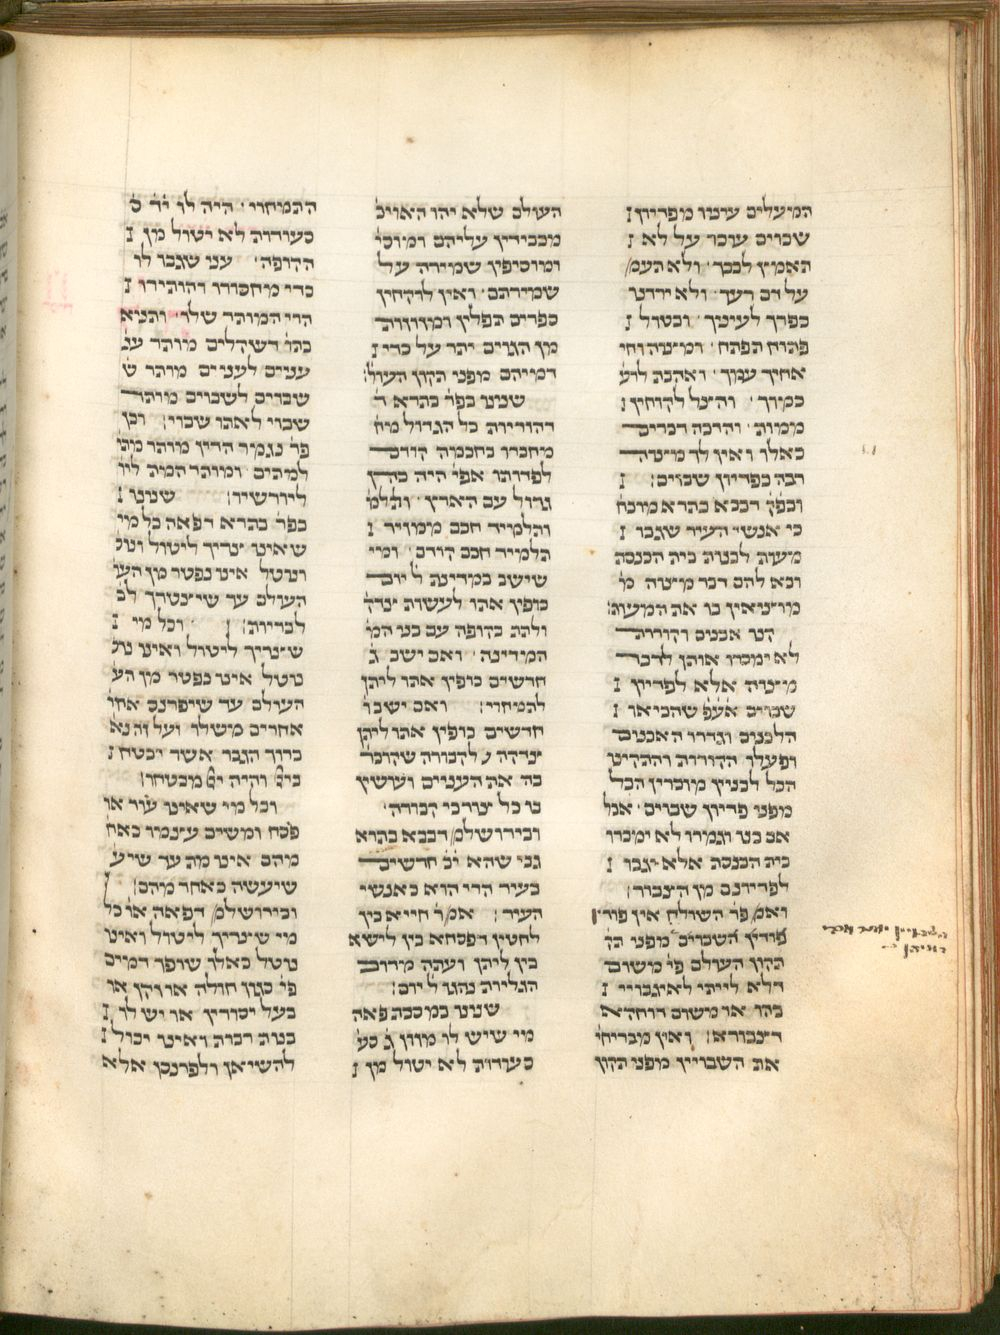 המעלים עינו מפריון
שבוים עובר על לא
תאמץ לבבך ולא תעמ
על דם רעך ולא ירדנו
בפרך לעיניך ובטול
פתוח תפתח ומצוה וחי
אחיך עמך ואהבת לרע
כמוך והצל לקוחין
ממות והרבה דברים
כאלו ואין לך מצוה
רבה כפדיון שבוים
ובפק דבבא בתרא מוכח
כי אנשי העיר שגבו
מעות לבנות בית הכנסת
ובא להם דבר מצוה
מוציאין בו את המעות
קנו אבנים וקורות
לא ימכרו אותן לדבר
מצוה אלא לפדיון
שבוים אעפ שהביאו
הלבנים וגדרו האבנים
ופעלו הקורות והתקינו
הכל לבנין מוכרין הכל
מפני פדיון שבוים אבל
אם בנו וגמרו לא ימכרו
בית הכנסת אלא יגבו
לפדיונם מן הציבור
ואמ פר השולח אין פורין
פודין השבוים מפני תק
תקון העולם פי משום
דלא לייתי לאיגרויי
בהו או משום דוחקא
דצבורא ואין מבריחי
את השבויין מפני תקון
העולם שלא יהו האויב
מכבידין עליהם ומוסי
ומוסיפין שמירה על
שמירתם ואין לוקחין
ספרים תפלין ומזוזות
מן הגוים יתר על כדי
דמיהם מפני תקון העול
שנינו בפר בתרא ד
דהוריות כל הגדול מח
מחברו בחכמה קודם
לפדותו אפי היה כהן
גדול עם הארץ ותלמ
ותלמיד חכם ממזיר
תלמיד חכם קודם ומי
שישב במדינה ל יום
כופין אתו לעשות צדק
ולתת בקופה עם בני המ
המדינה ואם ישב ג
חדשים כופין אתו ליתן
לתמחוי ואם ישב ו
חדשים כופין אתו ליתן
צדקה לקבורה שקוברי
בה את העניים ועושין
בו כל צורכי קבורה
ובירושלמ דבבא בתרא
גבי שהא יב חדשים
בעיר הרי הוא כאנשי
העיר אמר חייא בין
לחטין דפסחא בין לישא
בין ליתן ועתה מרוב
הגליות נהגו ל יום
שנינו במסכת פאה
מי שיש לו מזון ג סע
סעודות לא יטול מן
התמחוי היה לו יד ס
סעודות לא יטול מן
הקופה עני שגבו לו
כדי מיחסורו והותירו
הרי המותר שלו ותניא
בתו דשקלים מותר ענ
עניים לעניים מותר ש
שבוים לשבוים מותר
שבוי לאתו שבוי וכן
פר נגמר הדין מותר מתי
למתים ומותר המת ליו
ליורשיו שנינו
בפר בתרא דפאה כל מי
שאינו צריך ליטול ונוט
ונוטל אינו נפטר מן העו
העולם עד שיצטרך לב
לבריות וכל מי
שצריך ליטול ואינו נוט
נוטל אינו נפטר מן הע
העולם עד שיפרנס אחר
אחרים משלו ועל זה נא
ברוך הגבר אשר יבטח
ביי והיה יי מבטחו
וכל מי שאינו עור או
פסח ומשים עצמו כאח
מהם אינו מת עד שיע
שיעשה כאחד מהם
ובירושלמ דפאה או כל
מי שצריך ליטול ואינו
נוטל כאלו שופך דמים
פי כגון חולה או זקן או
בעל יסורין או יש לו
בנות רבות ואינו יכול
להשיאן ולפרנסן אלא